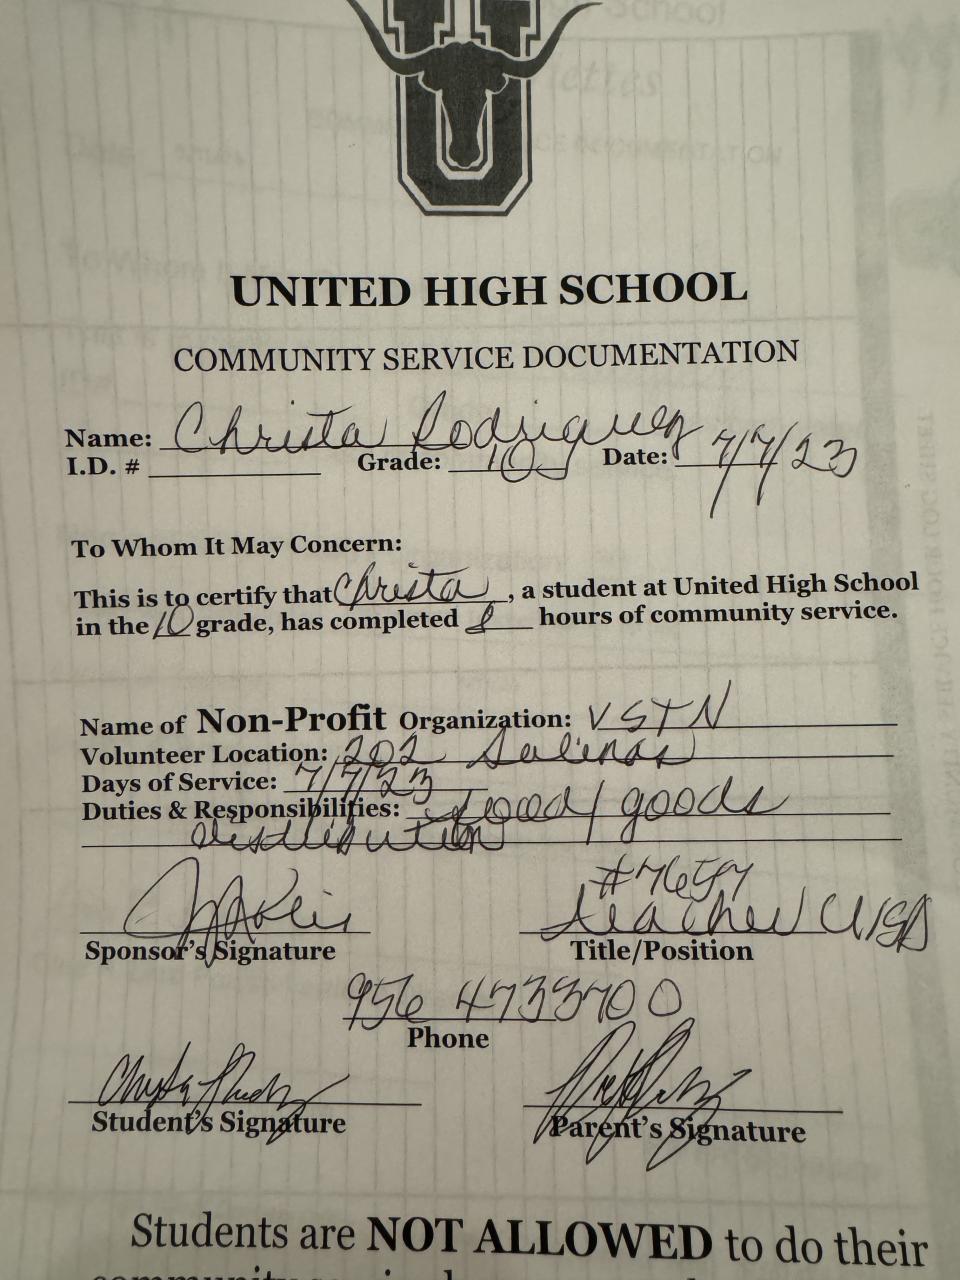 U
UNITED HIGH SCHOOL
COMMUNITY SERVICE DOCUMENTATION
Name: Christa Rodriguez
I.D. # Grade: 10 Date: 7/7/23
To Whom It May Concern:
This is to certify that Christa, a student at United High School
in the 10 grade, has completed 8 hours of community service.
Name of Non-Profit Organization: VSTN
Volunteer Location: 202 Salinas
Days of Service: 7/7/23
Duties & Responsibilities: food/goods
distribution
#7657
teacher UISD
Sponsor's Signature Title/Position
956 4733700
Phone
Student's Signature Parent's Signature
Students are NOT ALLOWED to do their